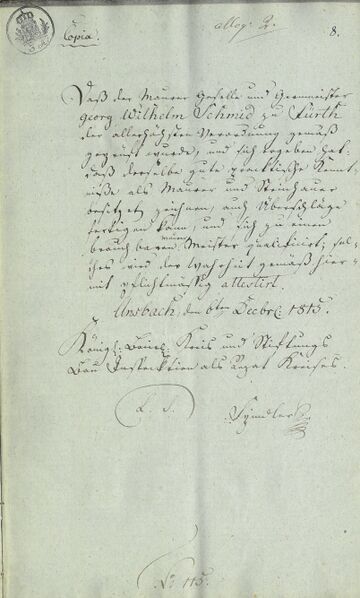 alleg. 2.
8.
Copia.
Daß der Maurer Geselle und Germeister
Georg Wilhelm Schmid zu Fürth
der allerhöchsten Verordnung gemäß
geprüft wurde, und sich ergeben hat,
daß derselbe gute practische Kennt-
niße als Maurer und Steinhauer
besitzet zeichnen, auch Überschläge
fertigen kann, und sich zu einen
brauchbaren Meister qualificirt; sol-
ches wird der Wahrheit gemäß hier-
mit pflichtmässig attestirt.
Ansbach, den 6ten Decbr. 1815.
Königl. Baier. Kreis und Stiftungs
Bau Inspecktion als Rezat Kreises.
L. S.
No 115.